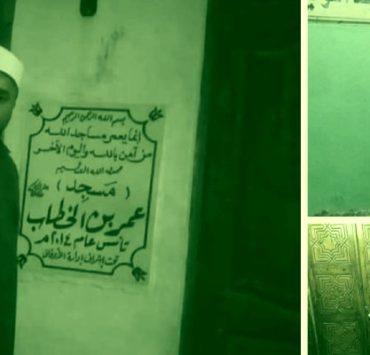 بسم الله الرحمن الرحيم
إنما يعمر مساجد الله
من آمن بالله واليوم الآخر
صدق الله العظيم
( مسجد )
عمر بن الخطاب
تأسس عام ٢٠١٤م
تحت إشراف إدارة الأوقاف